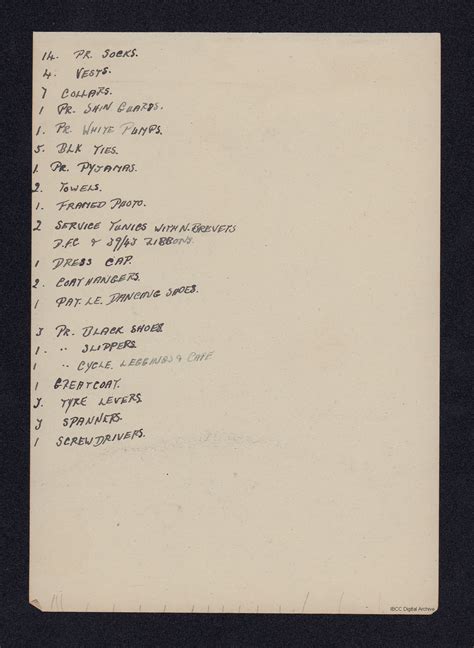 14. PR. SOCKS.
4. VESTS.
7 COLLARS.
1 PR. SHIN GUARDS.
1. PR. WHITE PUMPS.
5. BLK TIES.
1. PR. PYJAMAS.
2. TOWELS.
1. FRAMED PHOTO.
2 SERVICE TUNICS WITH N. BREVETS
D.F.C & 39/43 RIBBONS.
1 DRESS CAP.
2. COAT HANGERS.
1 PAT. LE. DANCING SHOES.
3 PR. BLACK SHOES
1. " SLIPPERS.
1 " CYCLE. LEGGINGS & CAPE
1 GREATCOAT.
3. TYRE LEVERS.
SPANNERS.
1 SCREWDRIVERS.
IBCC Digital Archive